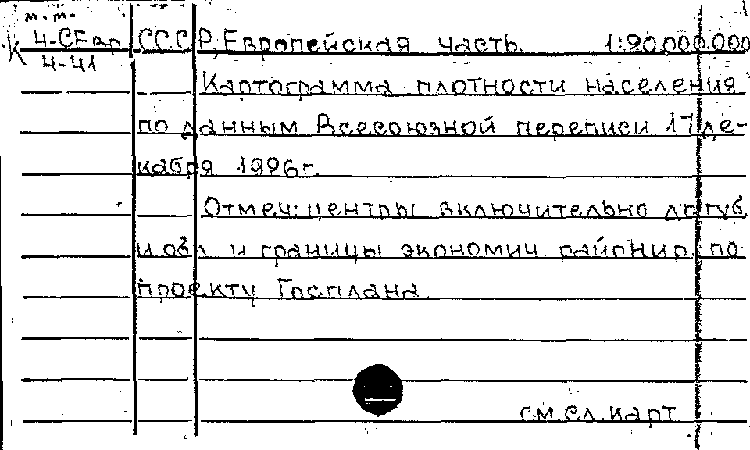 м.т.
К Ч-СЕвр СССР, Европейская часть. 1:20.000.000
Ч-41
Картограмма плотности населения
по данным Всесоюзной переписи 17 де-
кабря 1926г.
Отмеч: центры включительно до губ
и обл и границы экономич районир. по
проекту Госплана.
см.сл.карт